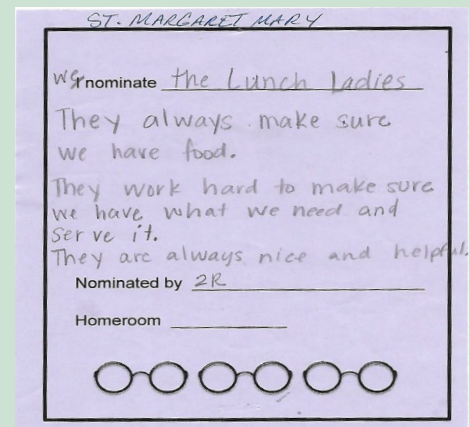 ST. MARGARET MARY
We nominate the Lunch Ladies
They always make sure
we have food.
They work hard to make sure
we have what we need and
serve it.
They are always nice and helpful.
Nominated by 2R
Homeroom